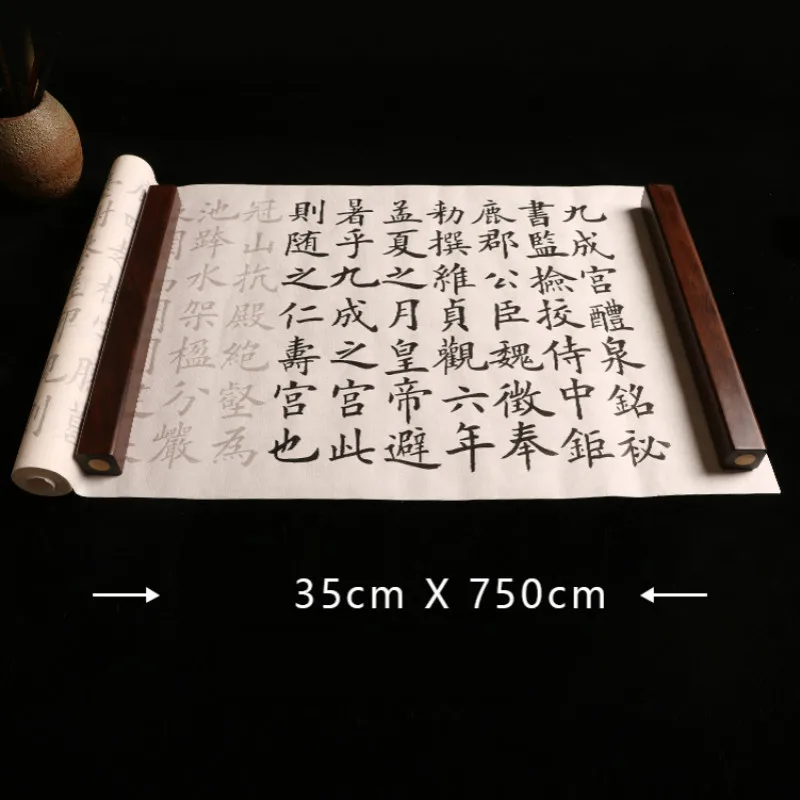 九成宮醴泉銘祕
書監撿挍侍中鉅
鹿郡公臣魏徵奉
勑撰維貞觀六年
孟夏之月皇帝避
暑乎九成之宮此
則随之仁壽宮也
冠山抗殿絕壑為
池跨水架楹分巖
35cm X 750cm